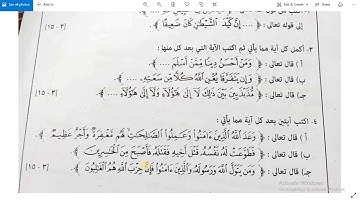 إلى قوله تعالى : ... إِنَّ كَيْدَ الشَّيْطَٰنِ كَانَ ضَعِيفًا ﴾ .
(٣ - ١٥)
٣. أكمل كل آية مما يأتي ثم اكتب الآية التي بعد كل منها :
أ) قال تعالى : ﴿ وَمَنْ أَحْسَنُ دِينًا مِّمَّنْ أَسْلَمَ .... ﴾ .
ب) قال تعالى : ﴿ وَإِن يَتَفَرَّقَا يُغْنِ اللَّهُ كُلًّا مِّن سَعَتِهِ .. ﴾ .
جـ) قال تعالى : ﴿ مُّذَبْذَبِينَ بَيْنَ ذَٰلِكَ لَا إِلَىٰ هَٰؤُلَاءِ وَلَا إِلَىٰ هَٰؤُلَاءِ ... ﴾ .
(٣ - ١٥)
٤. اكتب آيتين بعد كل آية مما يأتي :
أ) قال تعالى : ﴿ وَعَدَ اللَّهُ الَّذِينَ ءَامَنُوا وَعَمِلُوا الصَّٰلِحَٰتِ لَهُم مَّغْفِرَةٌ وَأَجْرٌ عَظِيمٌ ﴾ .
ب) قال تعالى : ﴿ فَطَوَّعَتْ لَهُ نَفْسُهُ قَتْلَ أَخِيهِ فَقَتَلَهُ فَأَصْبَحَ مِنَ الْخَٰسِرِينَ ﴾ .
جـ) قال تعالى : ﴿ وَمَن يَتَوَلَّ اللَّهَ وَرَسُولَهُ وَالَّذِينَ ءَامَنُوا فَإِنَّ حِزْبَ اللَّهِ هُمُ الْغَٰلِبُونَ ﴾ .
(٣ - ١٥)
Activate Windows